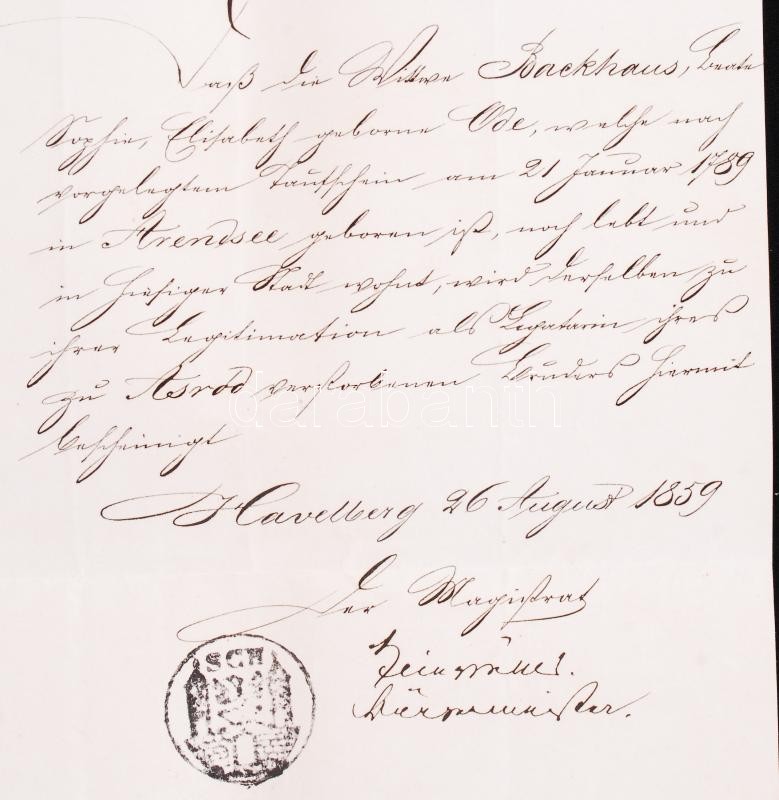 Daß die Wittwe Backhaus, Beate
Sophie, Elisabeth geborne Ode, welche nach
vorgelegtem Taufschein am 21 Januar 1789
in Arendsee geboren ist, noch lebt und
in hiesiger Stadt wohnt, wird derselben zu
ihrer Legitimation als Legatarin ihres
zu Asrod verstorbenen Bruders hiermit
bescheinigt
Havelberg 26 August 1859
Der Magistrat
Bürgermeister.
SCH
darabanth